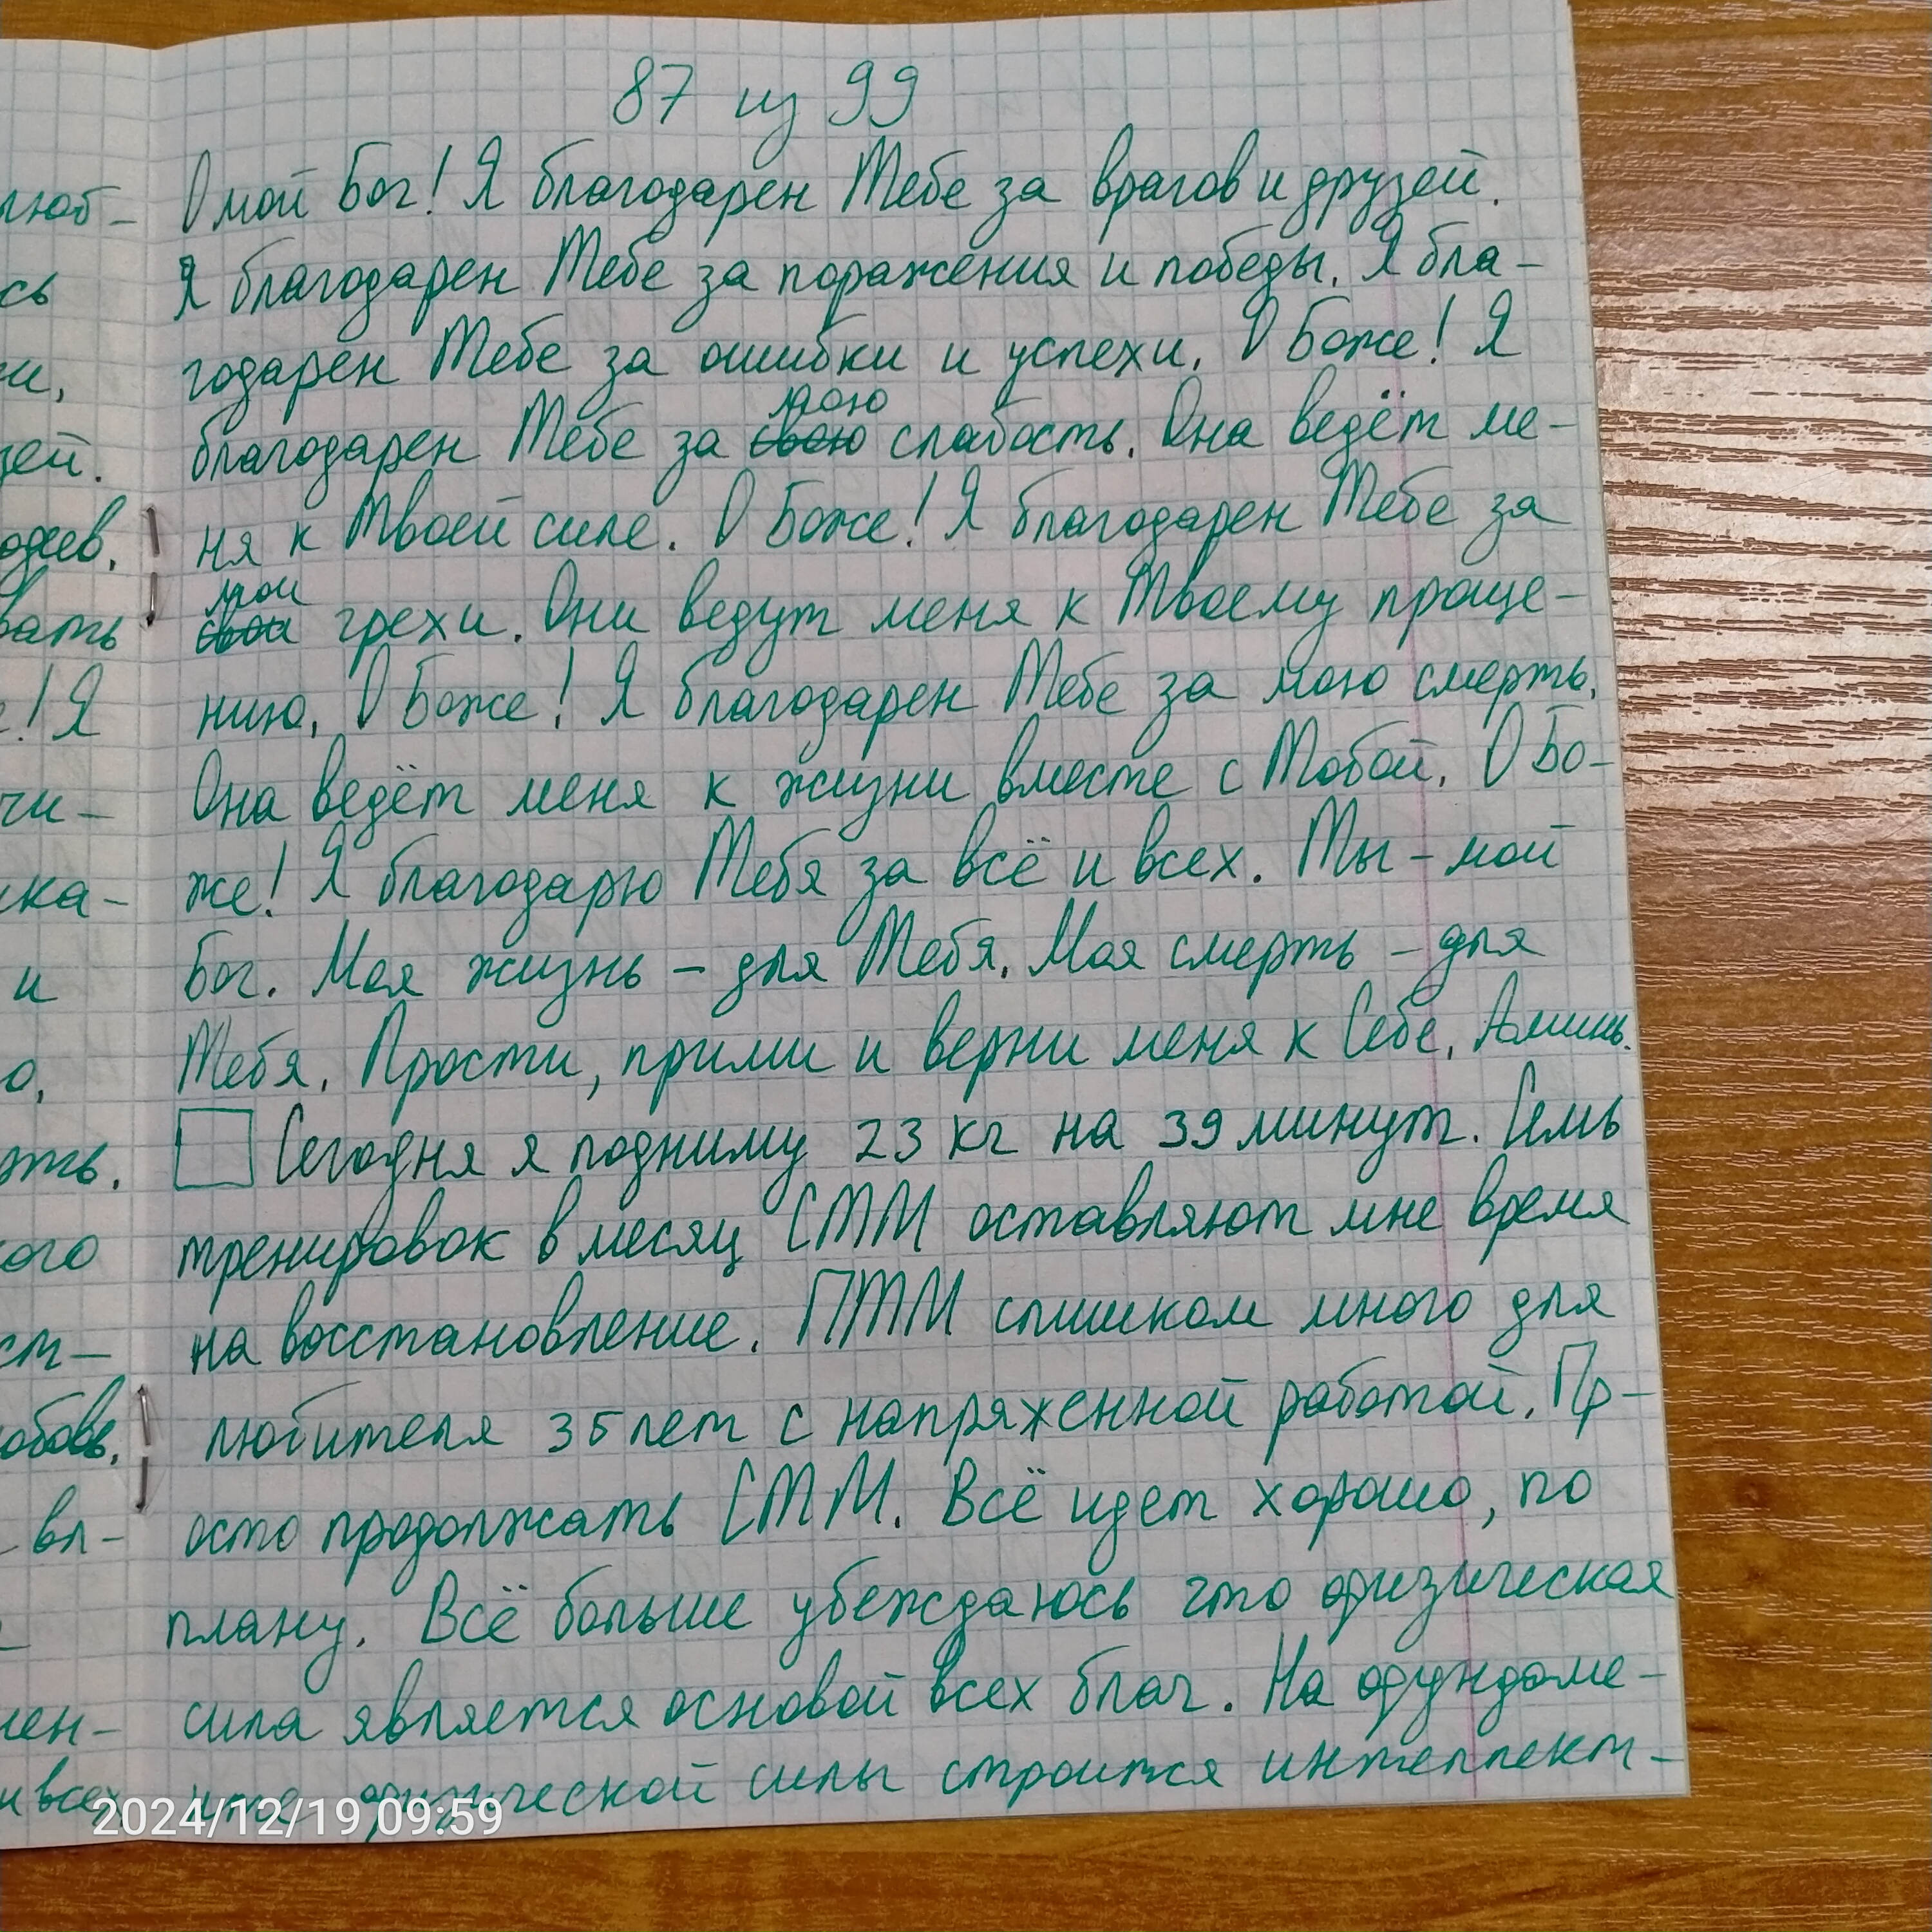 87 из 99
О мой Бог! Я благодарен Тебе за врагов и друзей.
Я благодарен Тебе за поражения и победы. Я бла-
годарен Тебе за ошибки и успехи. О Боже! Я
мою
благодарен Тебе за свою слабость. Она ведёт ме-
ня к Твоей силе. О Боже! Я благодарен Тебе за
мои
свои грехи. Они ведут меня к Твоему проще-
нию. О Боже! Я благодарен Тебе за мою смерть.
Она ведёт меня к жизни вместе с Тобой. О Бо-
же! Я благодарю Тебя за всё и всех. Ты - мой
Бог. Моя жизнь - для Тебя. Моя смерть - для
Тебя. Прости, прими и верни меня к Себе. Аминь.
Сегодня я подниму 23 кг на 39 минут. Семь
тренировок в месяц СТМ оставляют мне время
на восстановление. ПТМ слишком много для
любителя 35 лет с напряженной работой. Пр-
осто продолжать СТМ. Всё идет хорошо, по
плану. Всё больше убеждаюсь что физическая
сила является основой всех благ. На фундаме-
нте физической силы строится интеллект-
2024/12/19 09:59